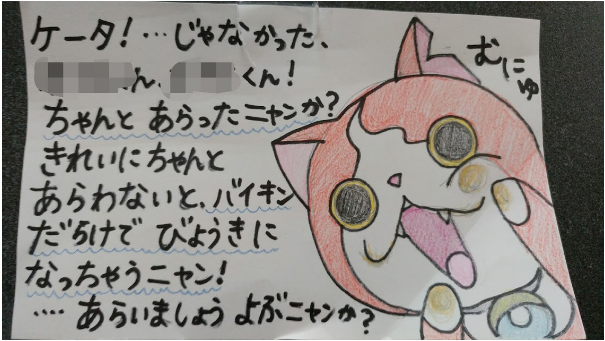 ケータ!…じゃなかった、
ん、くん!
ちゃんと あらったニャンか?
きれいにちゃんと
あらわないと、バイキン
だらけで びょうきに
なっちゃうニャン!
‥‥ あらいましょう よぶニャンか?
むにゅ